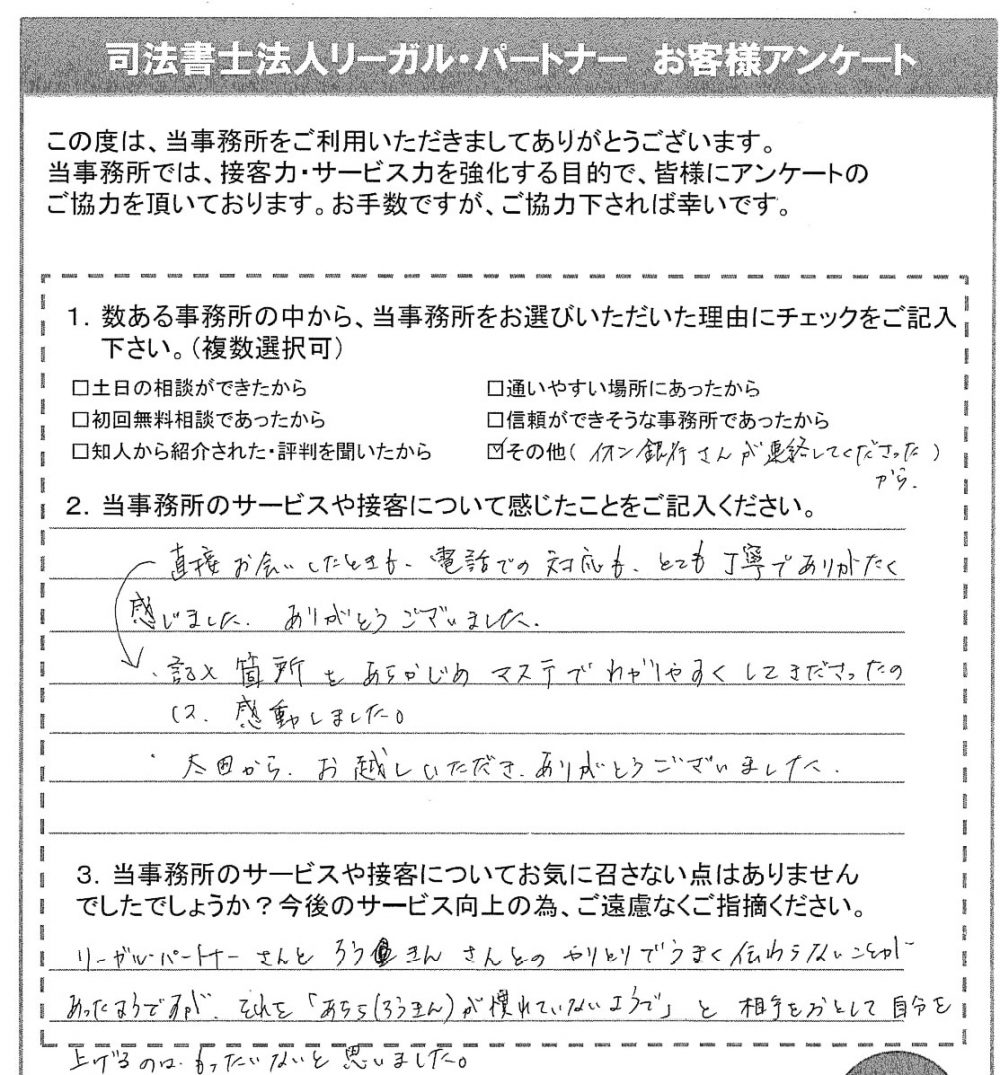 司法書士法人リーガル・パートナー お客様アンケート
この度は、当事務所をご利用いただきましてありがとうございます。
当事務所では、接客力・サービス力を強化する目的で、皆様にアンケートの
ご協力を頂いております。お手数ですが、ご協力下されば幸いです。
1. 数ある事務所の中から、当事務所をお選びいただいた理由にチェックをご記入
下さい。(複数選択可)
□土日の相談ができたから □通いやすい場所にあったから
□初回無料相談であったから □信頼ができそうな事務所であったから
□知人から紹介された・評判を聞いたから ☑その他( イオン銀行さんが連絡してくださった )
から.
2. 当事務所のサービスや接客について感じたことをご記入ください。
直接お会いしたときも、電話での対応も、とても丁寧でありがたく
感じました. ありがとうございました.
・記入箇所をあらかじめマステでわかりやすくしてきださったの
は、感動しました。
・太田から、お越しいただき、ありがとうございました.
3. 当事務所のサービスや接客についてお気に召さない点はありません
でしたでしょうか?今後のサービス向上の為、ご遠慮なくご指摘ください。
リーガル・パートナーさんとろうきんさんとのやりとりでうまく伝わらないことが
あったようですが、それを「あちら(ろうきん)が慣れていないようで」と相手をおとして自分を
上げるのは、もったいないと思いました。